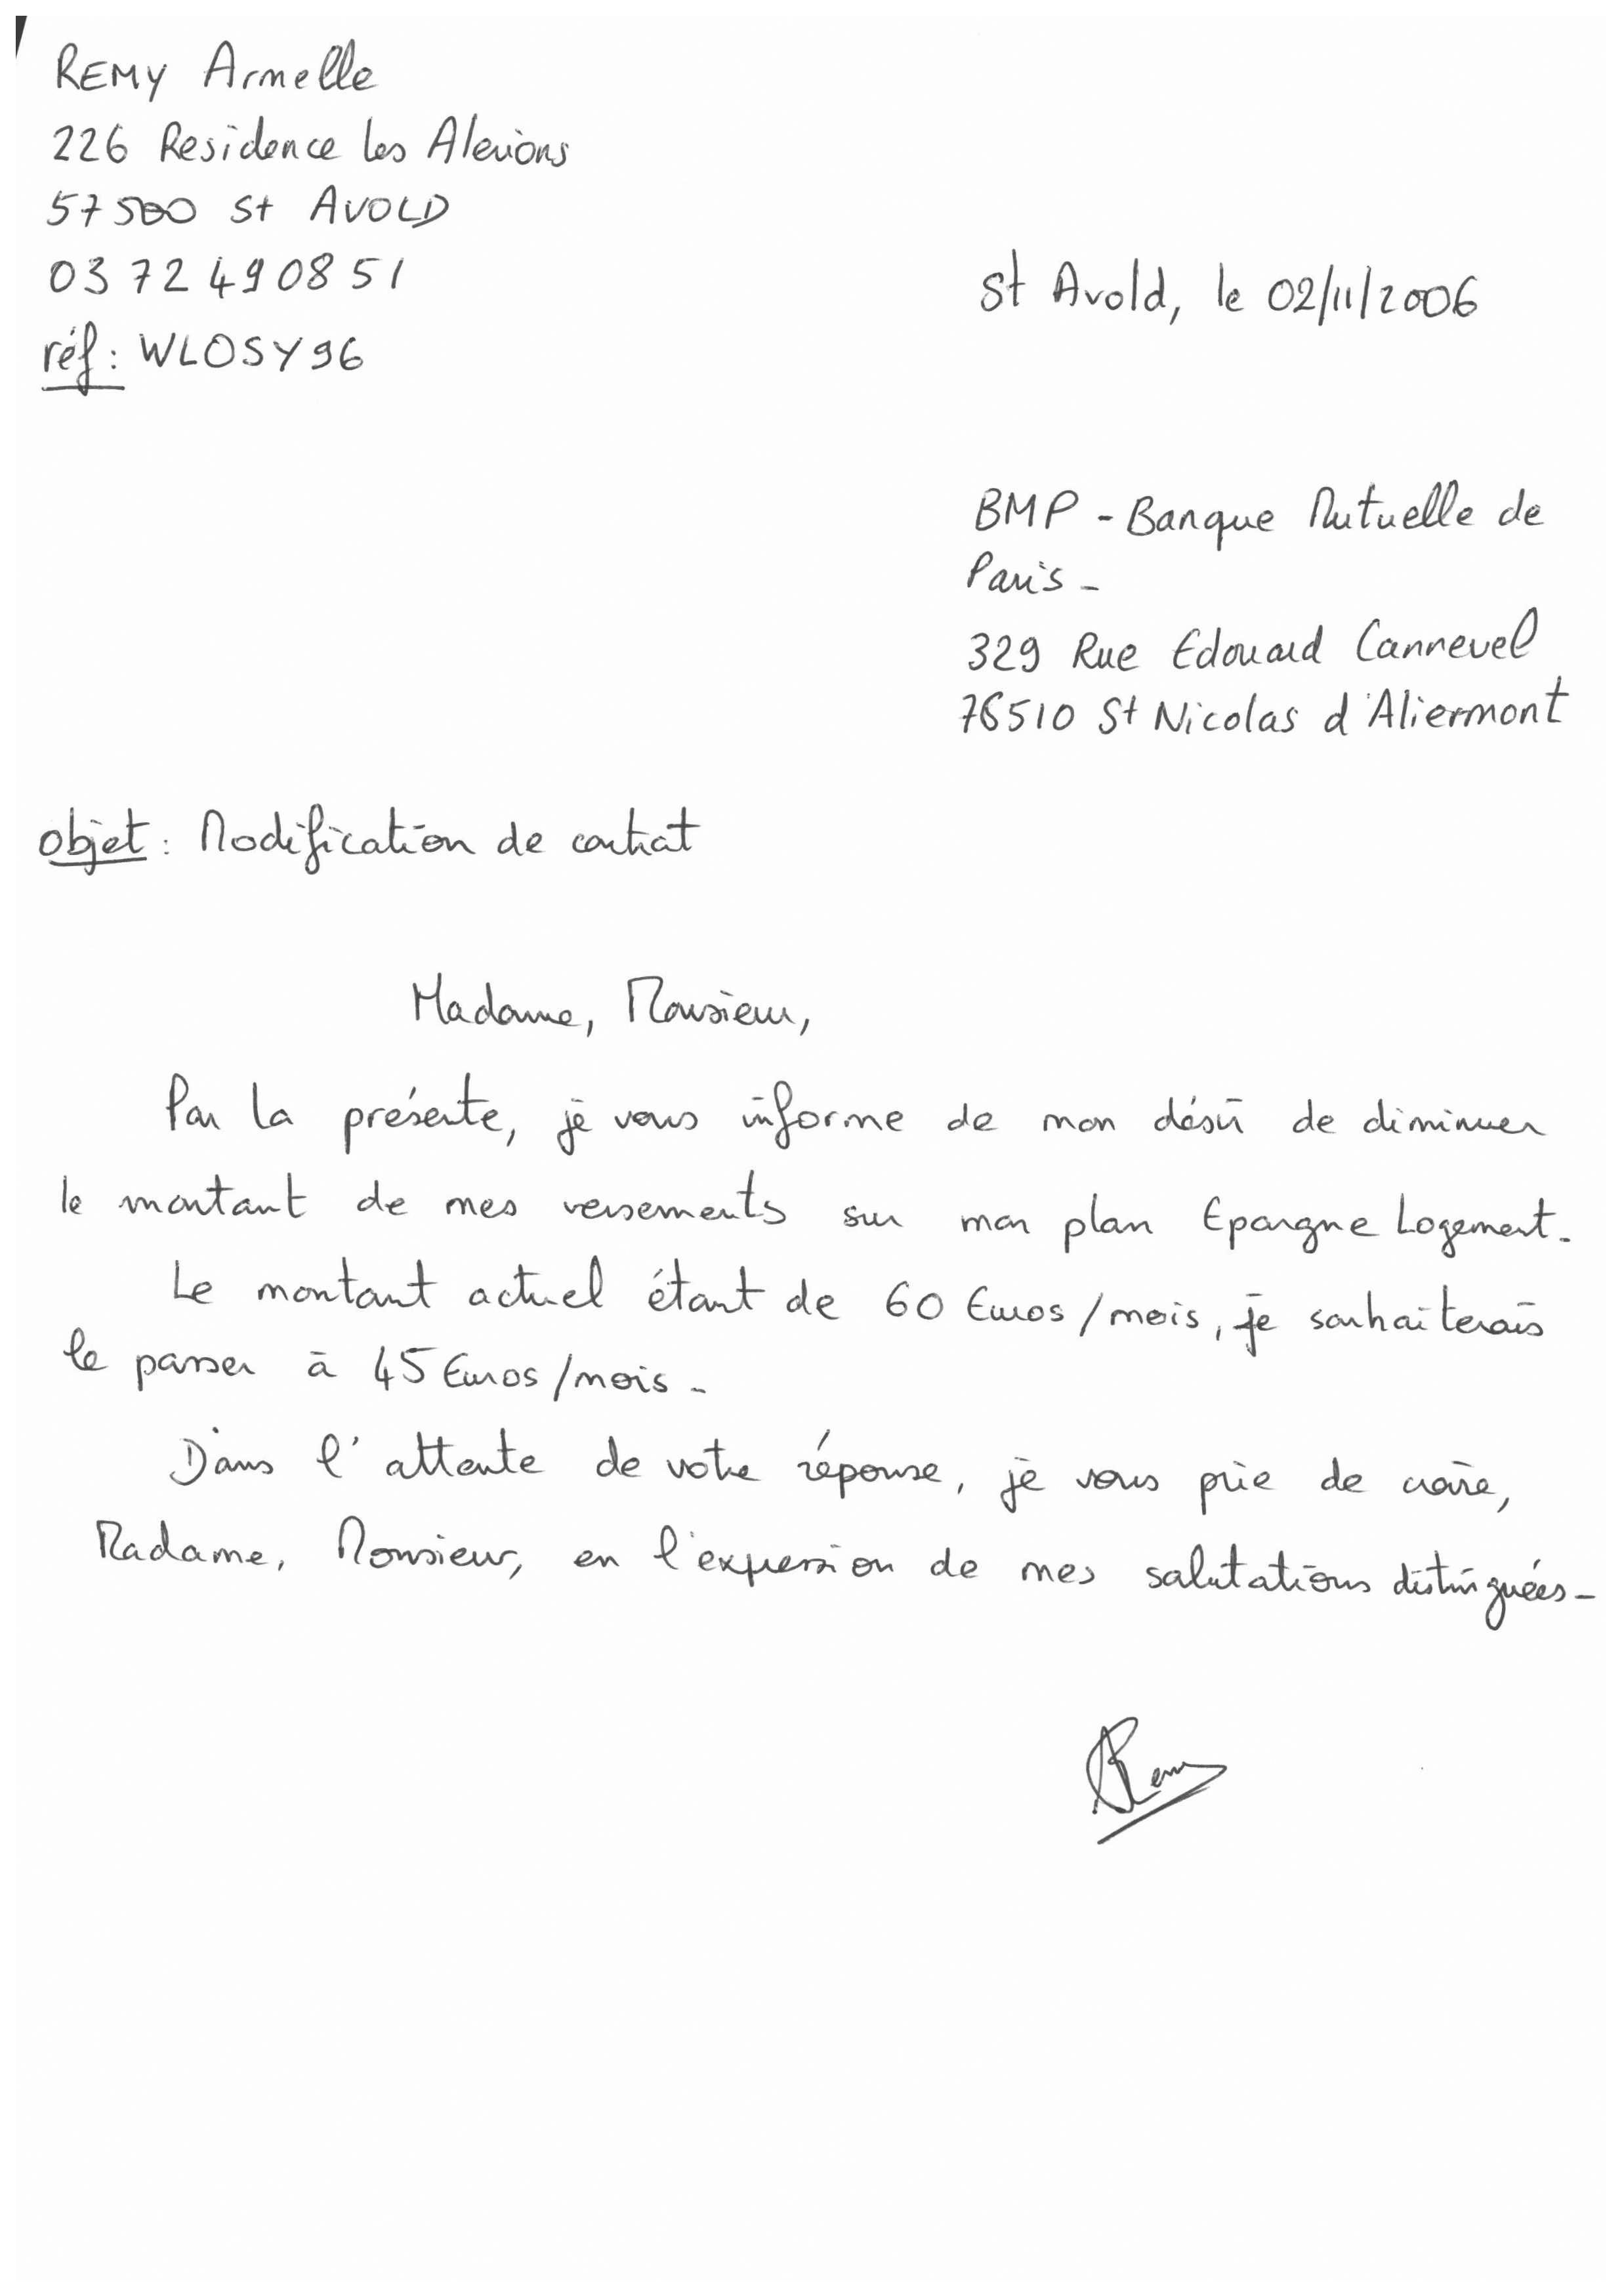 REMY Armelle
226 Residence les Alerions
57500 St AVOLD
03 72 49 08 51
réf : WLOSY96
St Avold, le 02/11/2006
BMP - Banque Mutuelle de
Paris -
329 Rue Edouard Cannevel
76510 St Nicolas d'Aliermont
objet : Modification de contrat
Madame, Monsieur,
Par la présente, je vous informe de mon désir de diminuer
le montant de mes versements sur mon plan Epargne Logement.
Le montant actuel étant de 60 Euros/mois, je souhaiterais
le passer à 45 Euros/mois -
Dans l'attente de votre réponse, je vous prie de croire,
Madame, Monsieur, en l'expression de mes salutations distinguées -